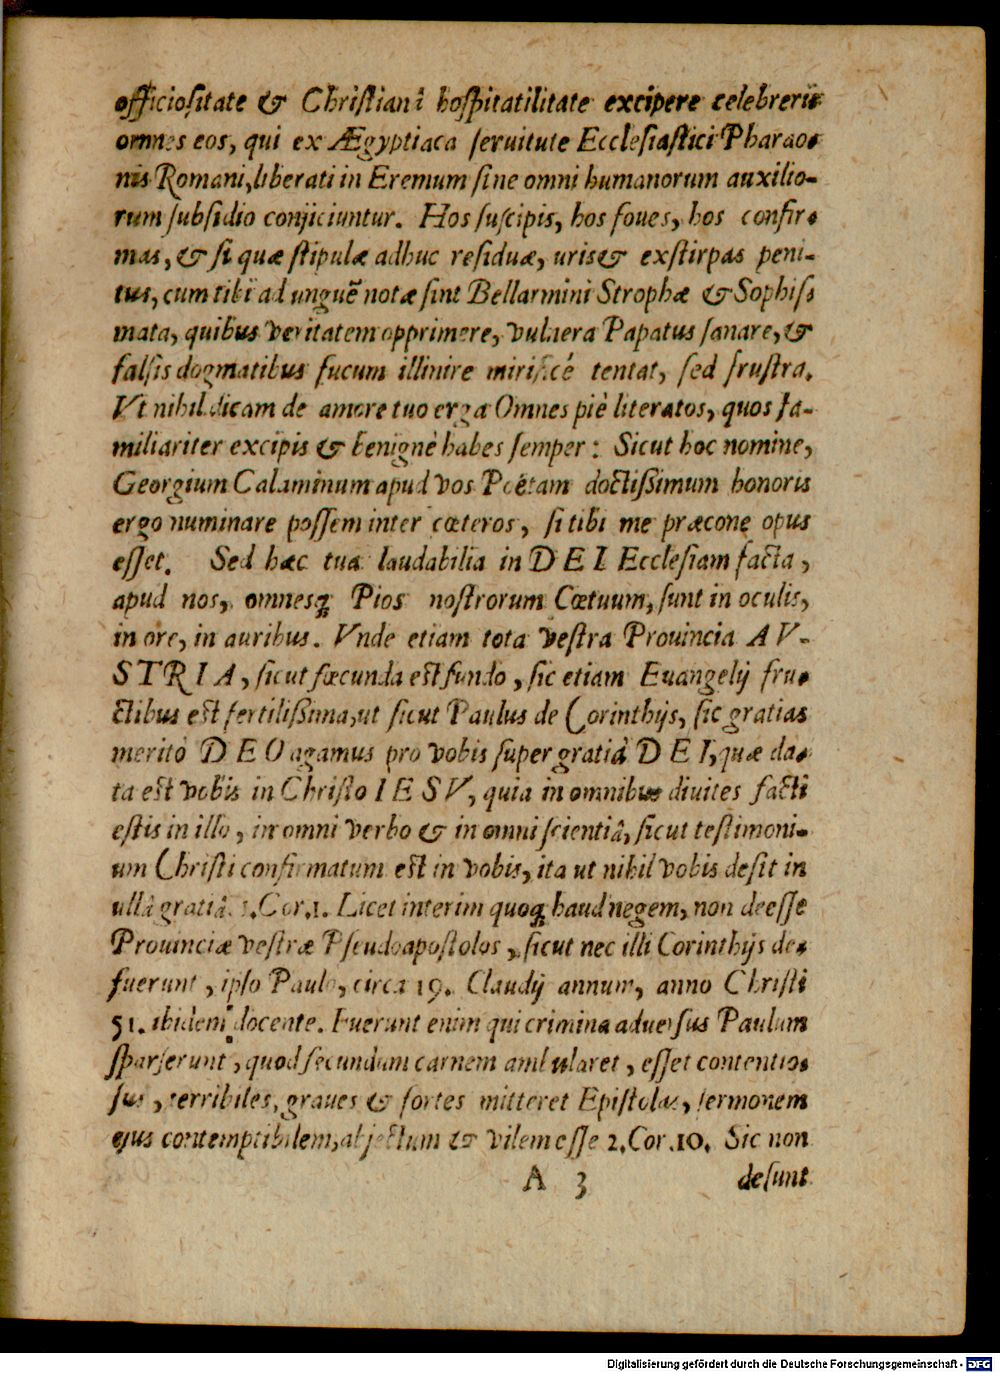 officiositate & Christianâ hospitatilitate excipere celebreris
omnes eos, qui ex Ægyptiaca seruitute Ecclesiastici Pharao-
nis Romani, liberati in Eremum sine omni humanorum auxilio-
rum subsidio conjiciuntur. Hos suscipis, hos foues, hos confir-
mas, & si quæ stipulæ adhuc residuæ, uris & exstirpas peni-
tus, cum tibi ad unguē notæ sint Bellarmini Strophæ & Sophis-
mata, quibus veritatem opprimere, vulnera Papatus sanare, &
falsis dogmatibus fucum illinire mirificé tentat, sed frustra.
Vt nihil dicam de amore tuo erga Omnes piè literatos, quos fa-
miliariter excipis & benignè habes semper: Sicut hoc nomine,
Georgium Calaminum apud vos Poëtam doctißimum honoris
ergo numinare possem inter cœteros, si tibi me præcone opus
esset. Sed hæc tua laudabilia in DEI Ecclesiam facta,
apud nos, omnesq́; Pios nostrorum Cœtuum, sunt in oculis,
in ore, in auribus. Vnde etiam tota vestra Prouincia AV-
STRIA, sicut fœcunda est fundo, sic etiam Euangelij fru-
ctibus est fertilißima, ut sicut Paulus de Corinthijs, sic gratias
meritò DEO agamus pro vobis super gratiâ DEI, quæ da-
ta est vobis in Christo IESV, quia in omnibus diuites facti
estis in illo, in omni verbo & in omni scientiâ, sicut testimoni-
um Christi confirmatum est in vobis, ita ut nihil vobis desit in
ullâ gratiâ. 1. Cor. 1. Licet interim quoq; haud negem, non deesse
Prouinciæ vestræ Pseudoapostolos, sicut nec illi Corinthijs de-
fuerunt, ipso Paulo, circa 19. Claudij annum, anno Christi
51. ibidem docente. Fuerunt enim qui crimina aduersus Paulum
sparserunt, quod secundum carnem ambularet, esset contentio-
sus, terribiles, graues & fortes mitteret Epistolas, sermonem
ejus contemptibilem, abjectum & vilem esse 2. Cor. 10. Sic non
A 3 desunt
Digitalisierung gefördert durch die Deutsche Forschungsgemeinschaft - DFG